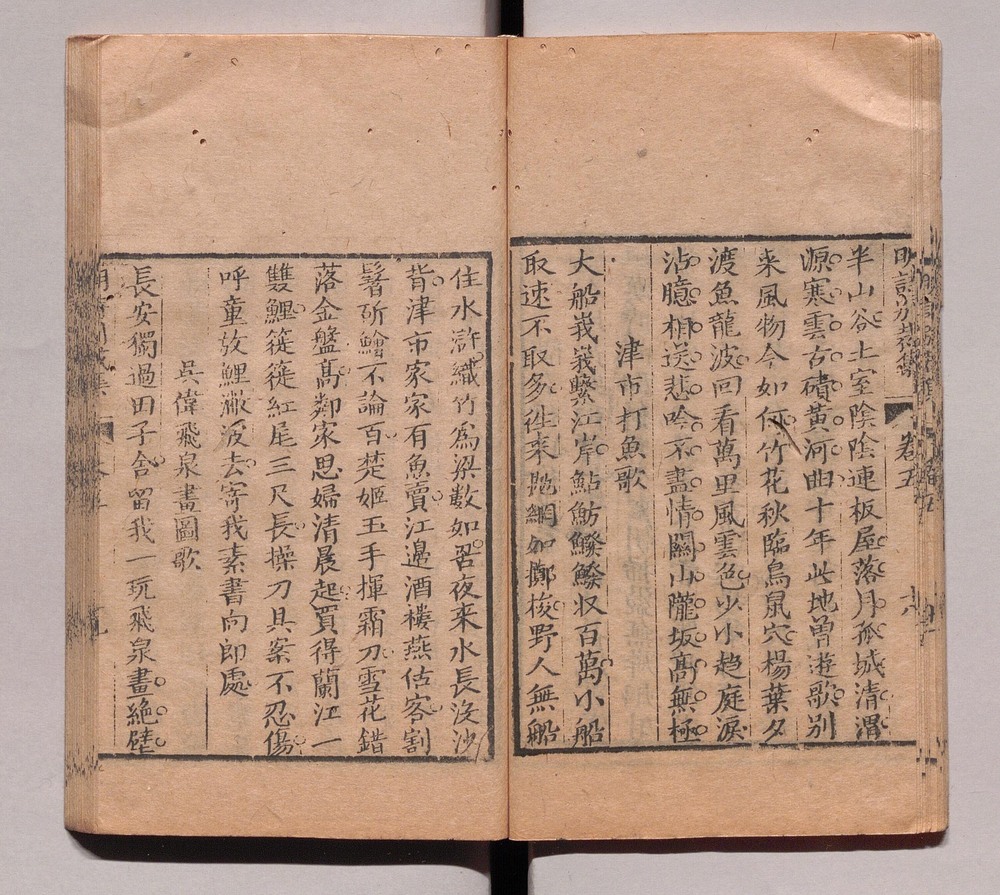 明詩別裁集 卷五 十八
半山谷土室陰陰連板屋落月孤城清渭
源寒雲古磧黃河曲十年此地曾遊歌別
來風物今如何竹花秋臨鳥鼠穴楊葉夕
渡魚龍波回看萬里風雲色少小趨庭淚
沾臆相送悲吟不盡情關山隴坂高無極
津市打魚歌
大船峩峩繫江岸鮎魴鱍鱍収百萬小船
取速不取多徃來抛網如擲梭野人無船
住水滸織竹為梁數如罟夜來水長沒沙
背津市家家有魚賣江邊酒樓燕估客割
鬐斫鱠不論百楚姬玉手揮霜刀雪花錯
落金盤高鄰家思婦清晨起買得蘭江一
雙鯉簁簁紅尾三尺長操刀具案不忍傷
呼童放鯉㵒波去寄我素書向郎處
吳偉飛泉畫圖歌
長安獨過田子舍留我一玩飛泉畫絕壁